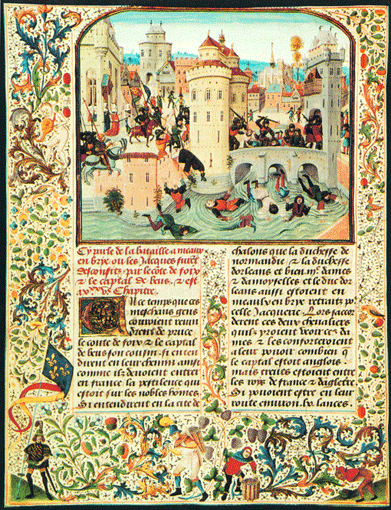 Cy parle de la bataille a meaux
en brye ou les Jacques furẽt
desconfits par le cõte de foix
& le captal de beus, & est
Chapitre.
En ce temps que ces
meschans gens
couroient revin
drent de pruce
le conte de foix & le captal
de beus son cousin. si enten
dirent en leur chemin ainsi
comme ilz devoient entrer
en france la pestilence qui
estoit sur les nobles homes.
Si entendirent en la cite de
chalons que la duchesse de
normandie & la duchesse
dorleans et bien dames
& damoyselles et le duc dor
leans aussi estoient en
meaulx en brye retraits
celle Jacquerie. Lors saccor
derent ces deux chevaliers
quilz yroient veoir ces da
mes & les conforteroient
a leur pouoir combien q̃
le captal estoit anglois.
mais treves estoient entre
les roys de france &
Si pouoient estre en leur
route environ .lx. lances.